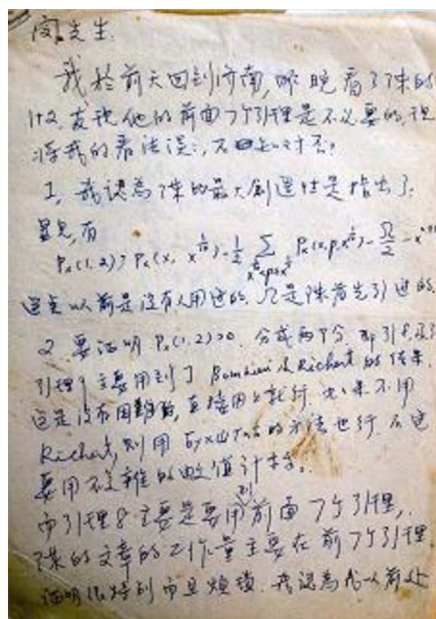 闵先生:
我於前天回到济南,昨晚看了陈的
1+2,发现他的前面7个引理是不必要的,现
将我的看法谈谈,不知对否?
1, 我認為陈的最大創造性是指出了:
显见,有
Pₓ(1,2) ≥ Pₓ(x, x^{1/10}) - 1/2 ∑ Pₓ(x,p,x^{1/10}) - Ω/2 - x
这是以前是没有人用过的, Ω是陈首先引进的
2. 要证明 Pₓ(1,2)>0, 分成两个分, 即引8,及引
引理9主要用到了 Bombieri & Richert 的结果,
这是没有困难的,直接用上就行. 如果不用
Richert, 则用 的方法也行. 不过
要用不复雜的数值计算.
而引理8主要是要用到前面7个引理,
陈的文章的工作量主要在前7个引理,
证明很特别而且烦琐. 我認為我以前